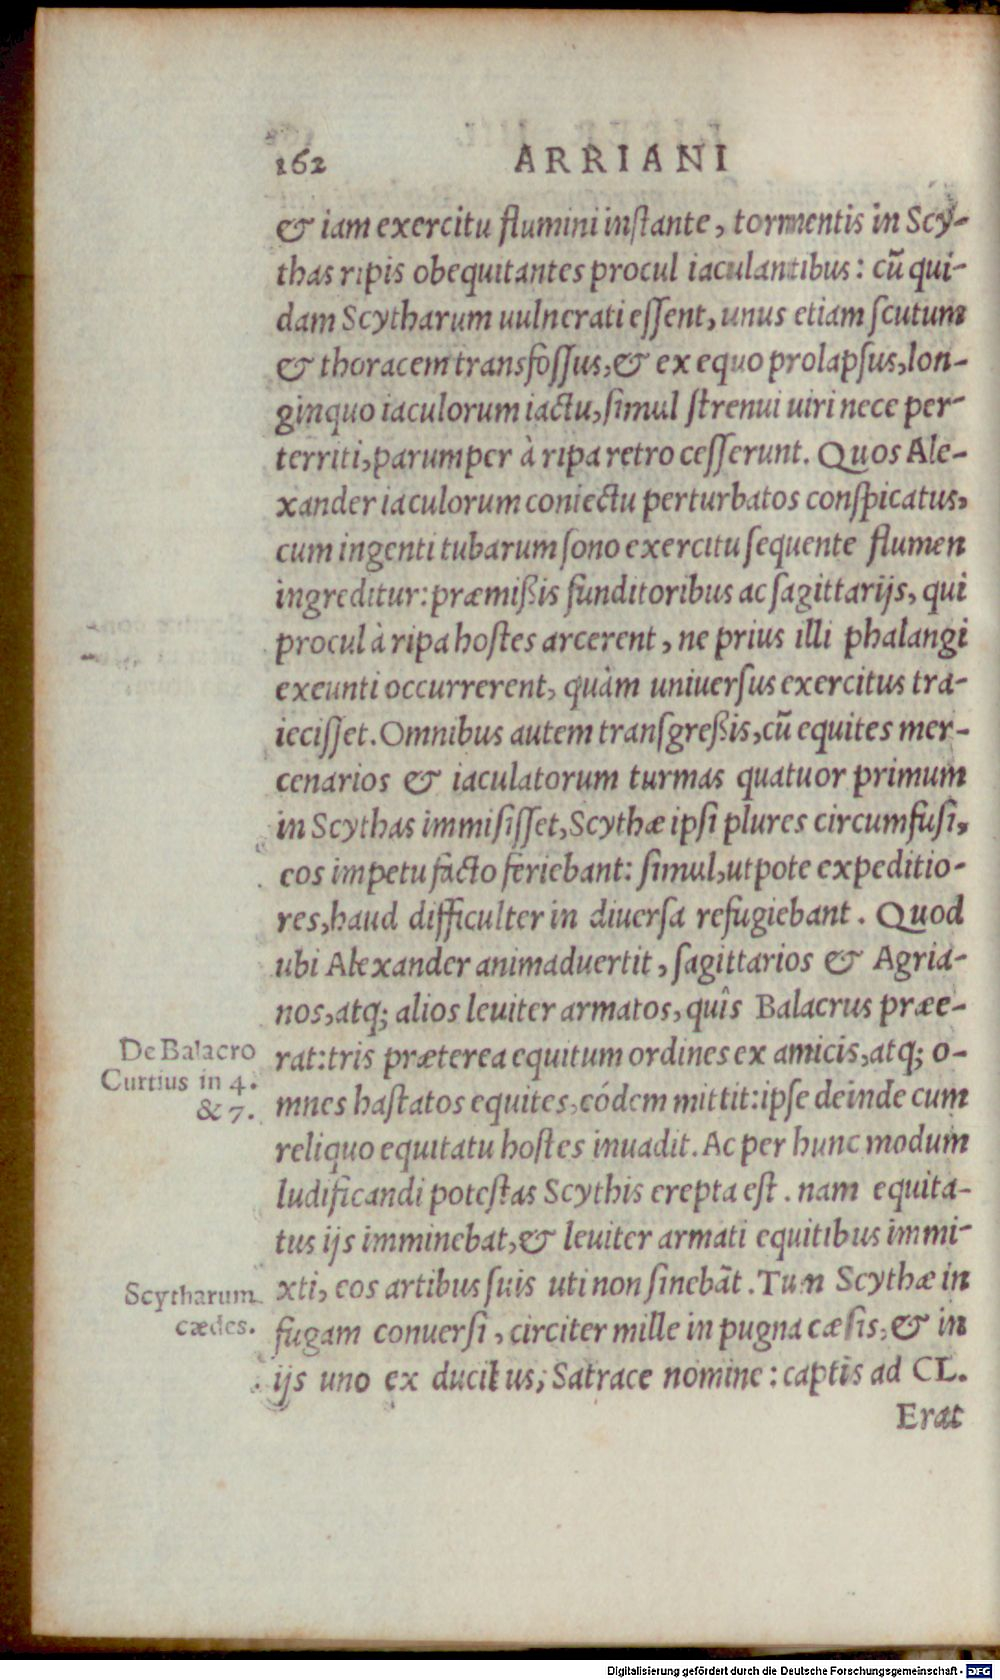 162 ARRIANI
& iam exercitu flumini inſtante, tormentis in Scy-
thas ripis obequitantes procul iaculantibus: cũ qui-
dam Scytharum uulnerati eſſent, unus etiam ſcutum
& thoracem transfoſſus, & ex equo prolapſus, lon-
ginquo iaculorum iactu, ſimul ſtrenui uiri nece per-
territi, parumper à ripa retro ceſſerunt. Quos Ale-
xander iaculorum coniectu perturbatos conſpicatus,
cum ingenti tubarum ſono exercitu ſequente flumen
ingreditur: præmißis funditoribus ac ſagittarijs, qui
procul à ripa hoſtes arcerent, ne prius illi phalangi
exeunti occurrerent, quàm uniuerſus exercitus tra-
ieciſſet. Omnibus autem tranſgreßis, cũ equites mer-
cenarios & iaculatorum turmas quatuor primum
in Scythas immiſiſſet, Scythæ ipſi plures circumfuſi,
eos impetu facto feriebant: ſimul, utpote expeditio-
res, haud difficulter in diuerſa refugiebant. Quod
ubi Alexander animaduertit, ſagittarios & Agria-
nos, atq; alios leuiter armatos, quîs Balacrus præe-
De Balacro
Curtius in 4.
& 7.
rat: tris præterea equitum ordines ex amicis, atq; o-
mnes haſtatos equites, eódem mittit: ipſe deinde cum
reliquo equitatu hoſtes inuadit. Ac per hunc modum
ludificandi poteſtas Scythis erepta eſt. nam equita-
tus ijs imminebat, & leuiter armati equitibus immi-
xti, eos artibus ſuis uti non ſinebãt. Tum Scythæ in
Scytharum
cædes.
fugam conuerſi, circiter mille in pugna cæſis, & in
ijs uno ex ducibus, Satrace nomine: captis ad CL.
Erat
Digitalisierung gefördert durch die Deutsche Forschungsgemeinschaft - DFG